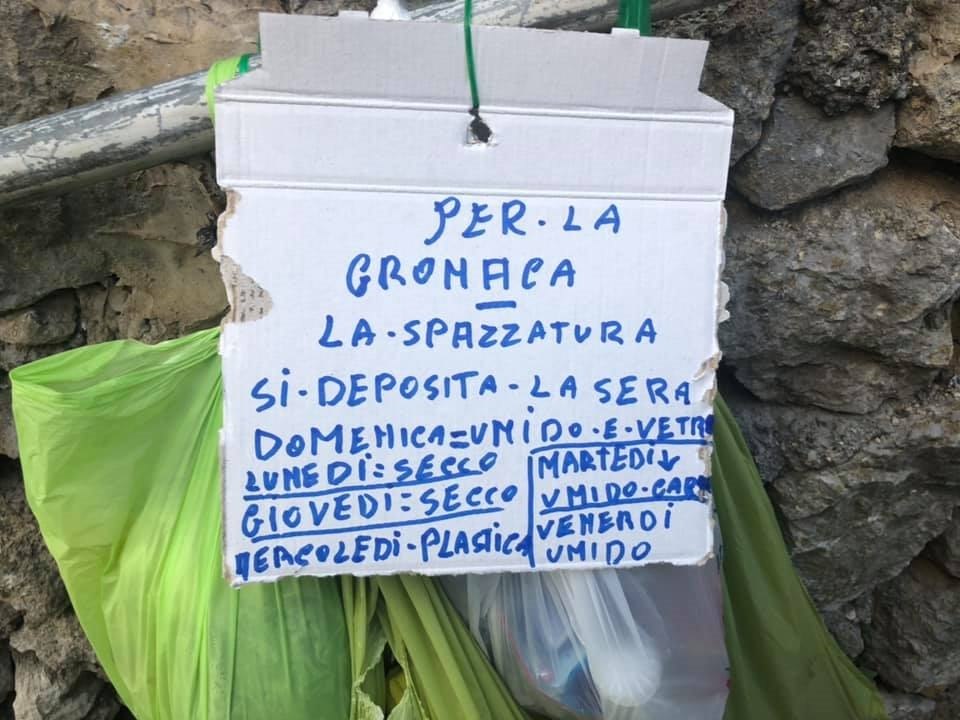 PER·LA
GRONACA
LA·SPAZZATURA
SI·DEPOSITA·LA SERA
DOMENICA=UMIDO·E·VETRO
LUNEDI=SECCO
GIOVEDI=SECCO
MERCOLEDI·PLASTICA
MARTEDI↓
UMIDO·CAR
VENERDI
UMIDO